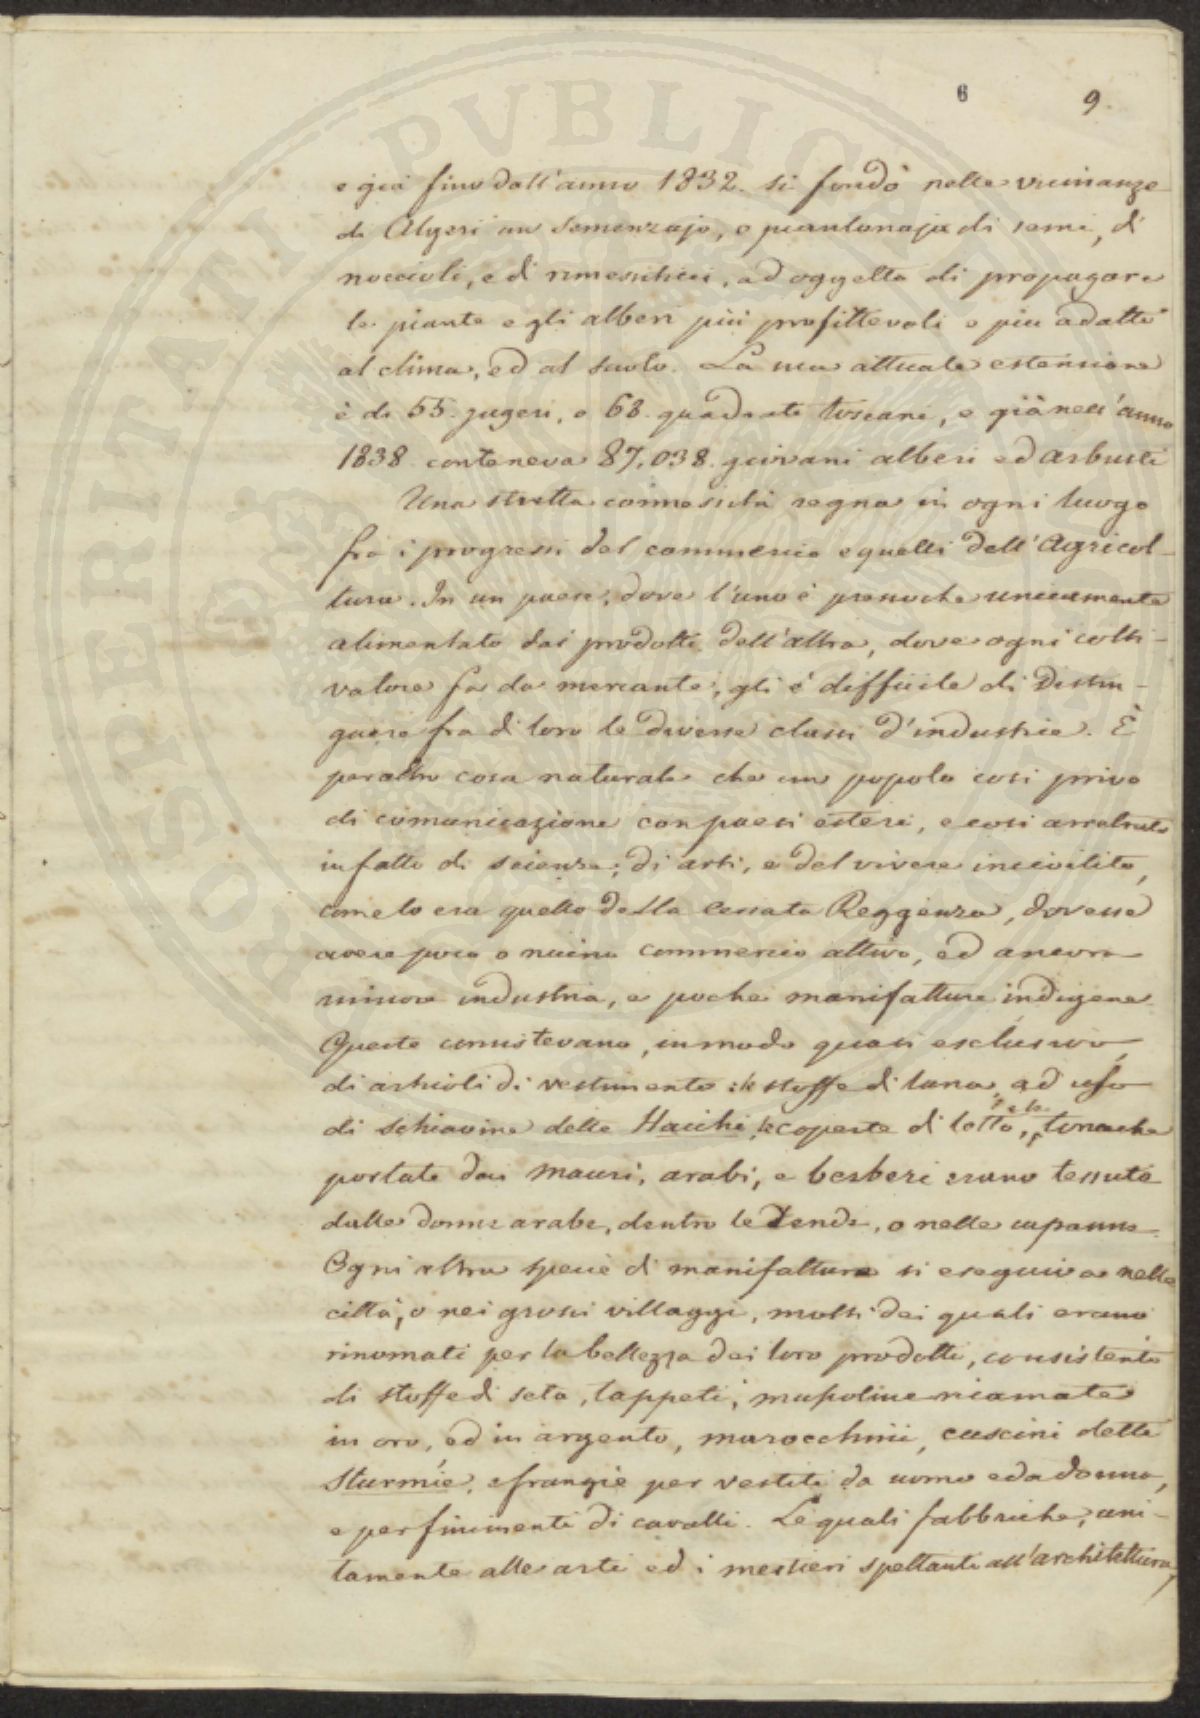 6 9.
e già fino dall'anno 1832. si fondò nelle vicinanze
di Algeri un semenzajo, e piantonaja di semi, di
noccioli, e di rimessiticci, ad oggetto di propagare
le piante e gli alberi più profittevoli e più adatte
al clima, ed al suolo. La sua attuale estensione
è di 55. jugeri, o 68. quadrate toscani, e già nell'anno
1838. conteneva 87,038. giovani alberi ed arbusti
Una stretta connessità regna in ogni luogo
fra i progressi del commercio e quelli dell'Agricol-
tura. In un paese, dove l'uno è pressoche unicamente
alimentato dai prodotti dell'altra, dove ogni colti-
vatore fa da mercante, gli è difficile di distin-
guere fra di loro le diverse classi d'industrie. È
peraltro cosa naturale che un popolo così privo
di comunicazione con paesi esteri, e così arretrato
in fatto di scienze, di arti, e del vivere incivilito,
come lo era quello della cessata Reggenza, dovesse
avere poco o niuno commercio attivo, ed ancora
minore industria, e poche manifatture indigene.
Queste consistevano, in modo quasi esclusivo,
di articoli di vestimento: le stoffe di lana, ad uso
di schiavine dette Haichi, le coperte di letto, e le
tonache
portate dai mauri, arabi, e berberi erano tessute
dalle donne arabe, dentro le tende, o nelle capanne.
Ogni altra specie di manifattura si eseguiva nelle
città, o nei grossi villaggi, molti dei quali erano
rinomati per la bellezza dei loro prodotti, consistenti
di stoffe di seta, tappeti, mussoline ricamate
in oro, ed in argento, marocchini, cuscini dette
Sturmie, e frangie per vestiti da uomo e da donna,
e per finimenti di cavalli. Le quali fabbriche, uni-
tamente alle arti ed i mestieri spettanti all'architettura,
PROSPERITATI PVBLICAE